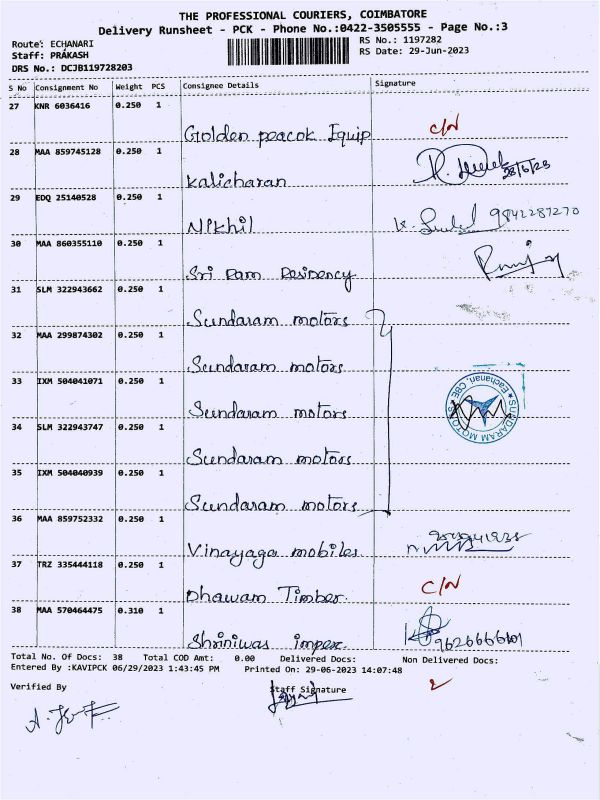 THE PROFESSIONAL COURIERS, COIMBATORE
Delivery Runsheet - PCK - Phone No.:0422-3505555 - Page No.:3
Route: ECHANARI RS No.: 1197282
Staff: PRAKASH RS Date: 29-Jun-2023
DRS No.: DCJB119728203
S No Consignment No Weight PCS Consignee Details Signature
27 KNR 6036416 0.250 1
Golden peacok Equip C/N
28 MAA 859745128 0.250 1
Kalicharan 28/6/23
29 EDQ 25140528 0.250 1
Nikhil 9842287270
30 MAA 860355110 0.250 1
Sri Ram Residency
31 SLM 322943662 0.250 1
Sundaram motors
32 MAA 299874302 0.250 1
Sundaram motors
33 IXM 504041071 0.250 1
Sundaram motors
SUNDARAM MOTORS Eachanari, CBE
34 SLM 322943747 0.250 1
Sundaram motors
35 IXM 504040939 0.250 1
Sundaram motors
36 MAA 859752332 0.250 1
Vinayaga mobiles
37 TRZ 335444118 0.250 1
Dhawam Timber. C/N
38 MAA 570464475 0.310 1
Shriniwas impex.
Total No. Of Docs: 38 Total COD Amt: 0.00 Delivered Docs: Non Delivered Docs:
Entered By :KAVIPCK 06/29/2023 1:43:45 PM Printed On: 29-06-2023 14:07:48
Verified By Staff Signature 2